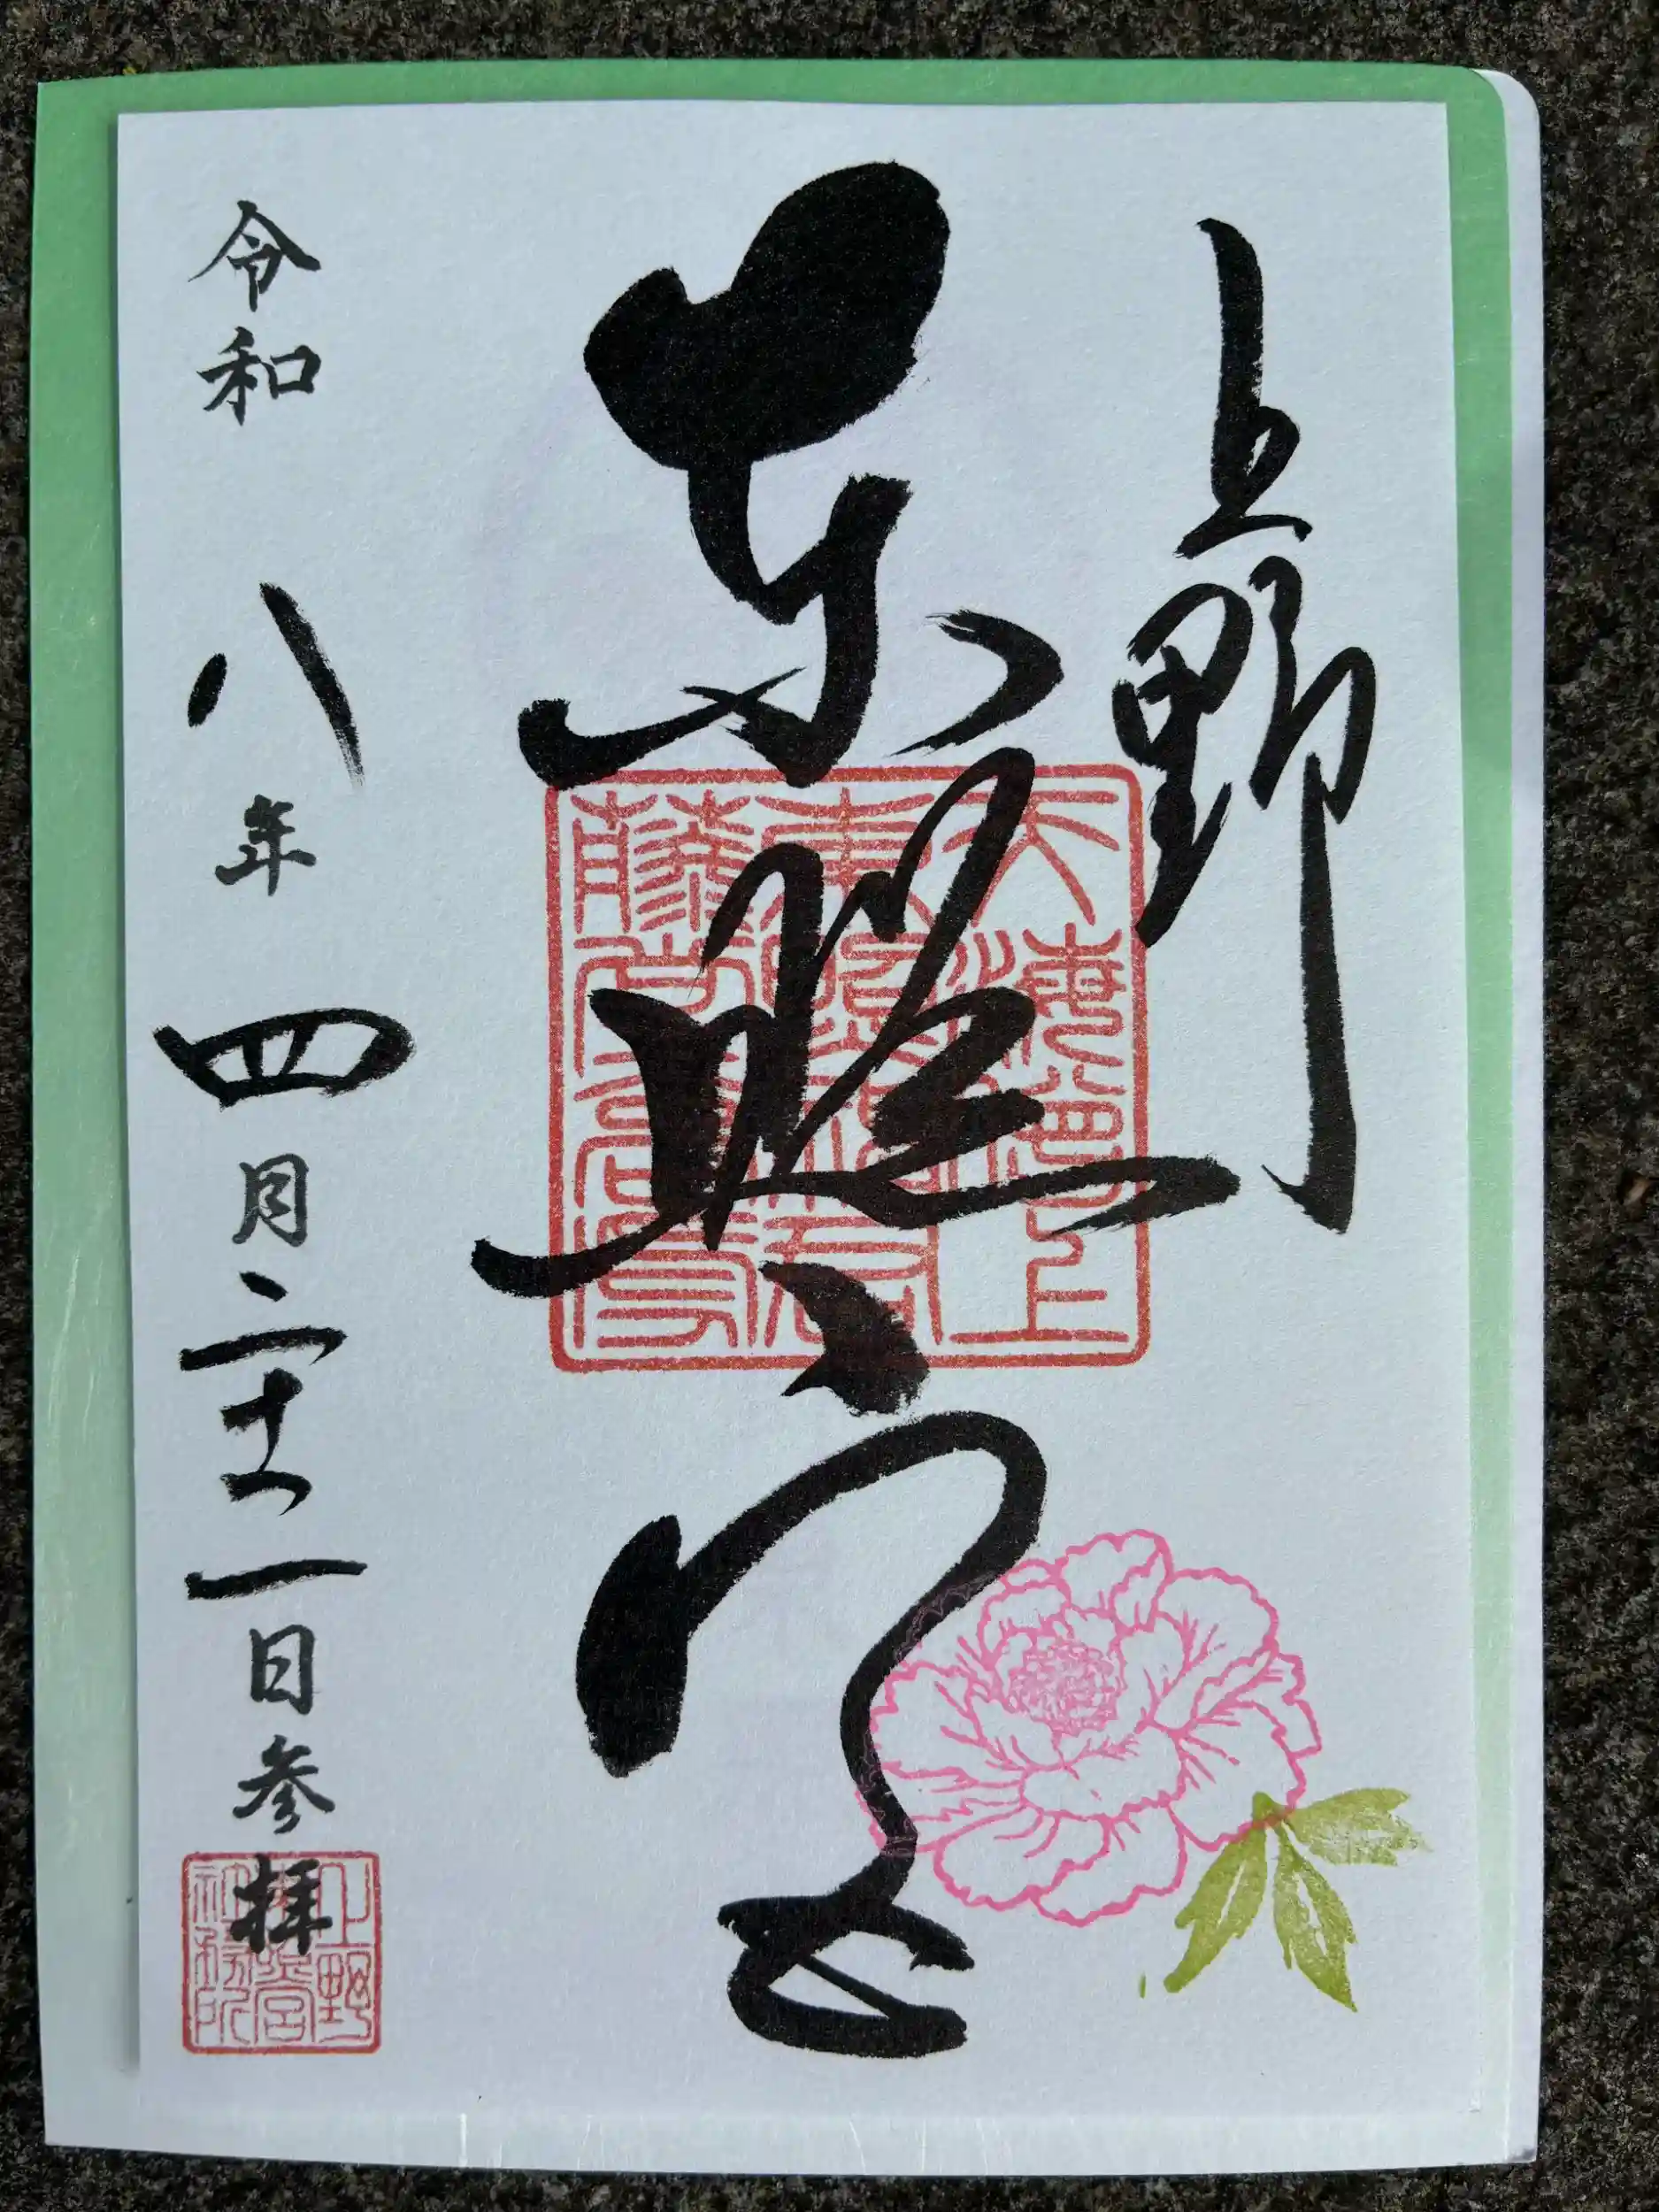 上野
東照宮
令和八年四月二十二日参拝
上野
東照宮
社務所